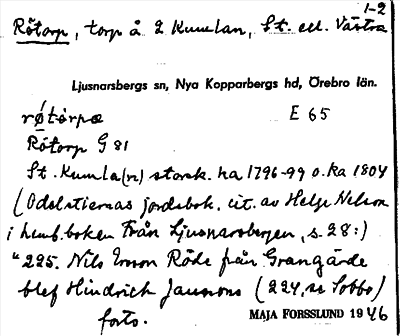 1-2
Rötorp, torp å 2 Kumlan, St. ell. Västra
Ljusnarsbergs sn, Nya Kopparbergs hd, Örebro län.
røtòrpæ E 65
Rötorp G 81
St. Kumla(n) stavsk. ha 1796-99 o. ka 1804
(Odelstiernas jordebok, cit. av Helge Nelson
i hemb.boken Från Ljusnarsbergen, s. 28:)
"225. Nils Ersson Röde från Grangärde
blef Hindrich Janssons (224, se Tobbo)
forts. MAJA FORSSLUND 1946